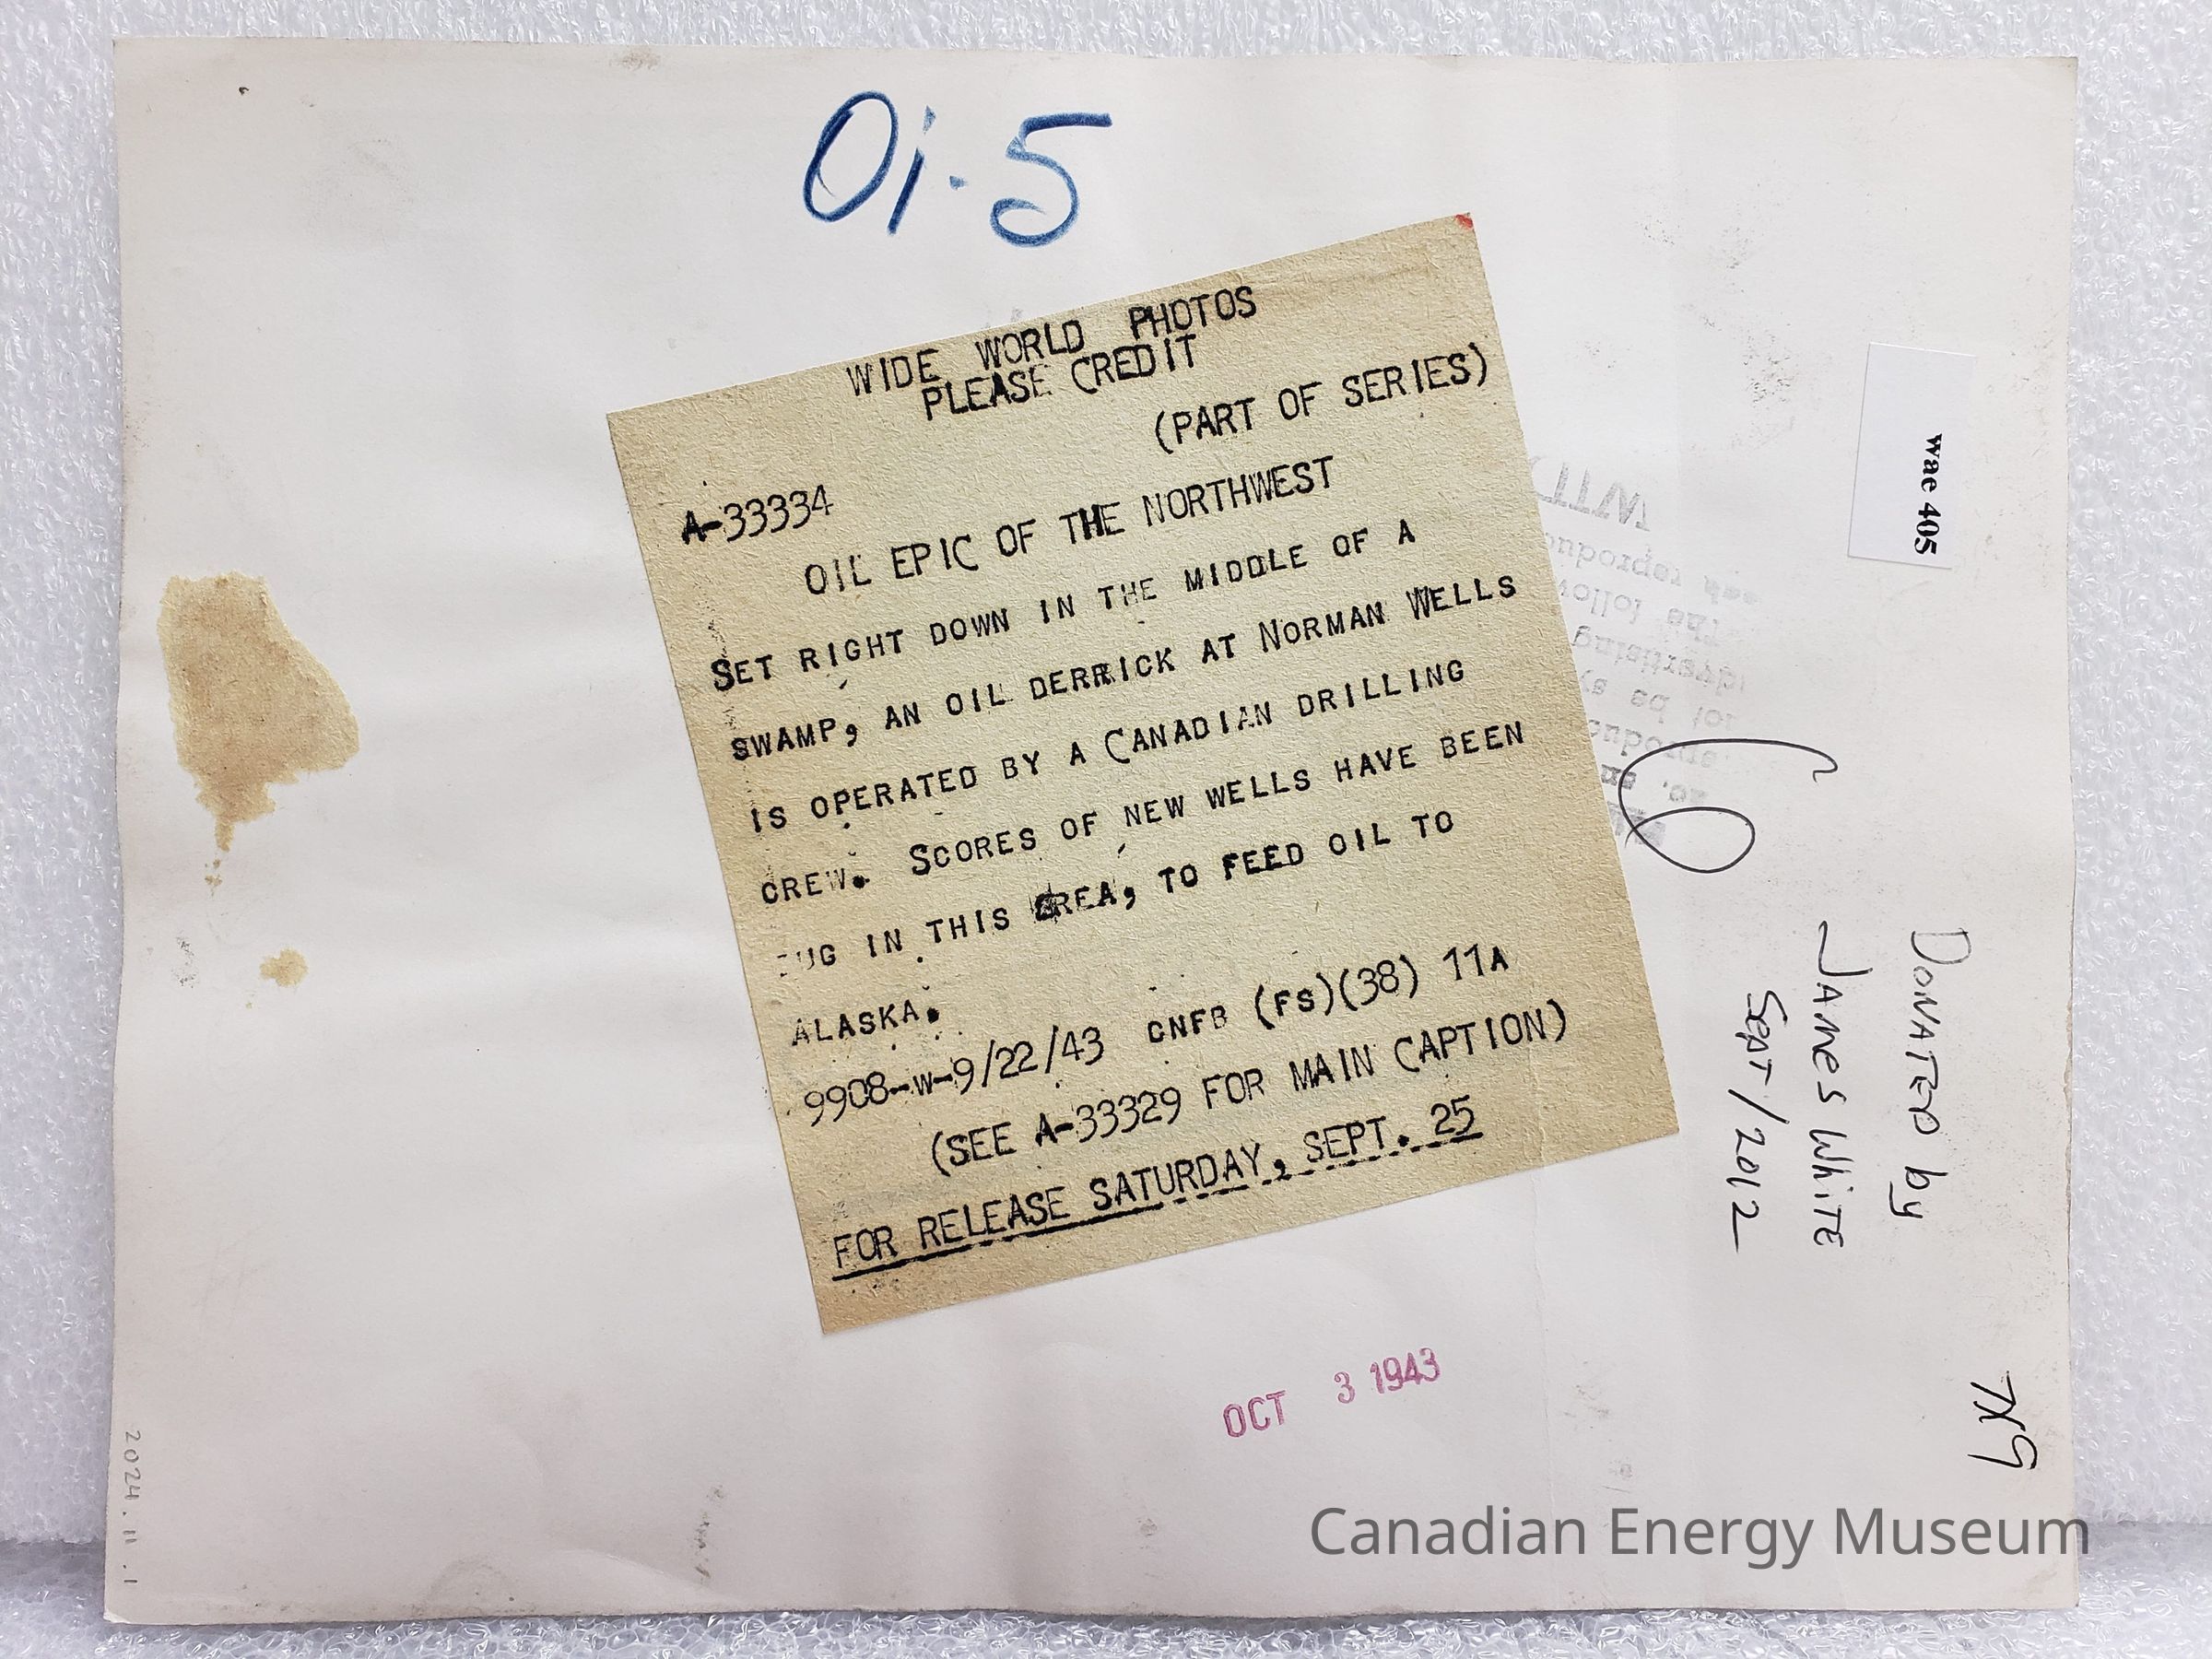 Oi-5
WIDE WORLD PHOTOS
PLEASE CREDIT
(PART OF SERIES)
A-33334
OIL EPIC OF THE NORTHWEST
SET RIGHT DOWN IN THE MIDDLE OF A
SWAMP, AN OIL DERRICK AT NORMAN WELLS
IS OPERATED BY A CANADIAN DRILLING
CREW. SCORES OF NEW WELLS HAVE BEEN
IN THIS AREA, TO FEED OIL TO
ALASKA.
9908-W-9/22/43 CNFB (FS)(38) 11A
(SEE A-33329 FOR MAIN CAPTION)
FOR RELEASE SATURDAY, SEPT. 25
OCT 3 1943
wae 405
DONATED by
JAMES WHITE
SEPT/2012
7X9
2024.11.1
Canadian Energy Museum